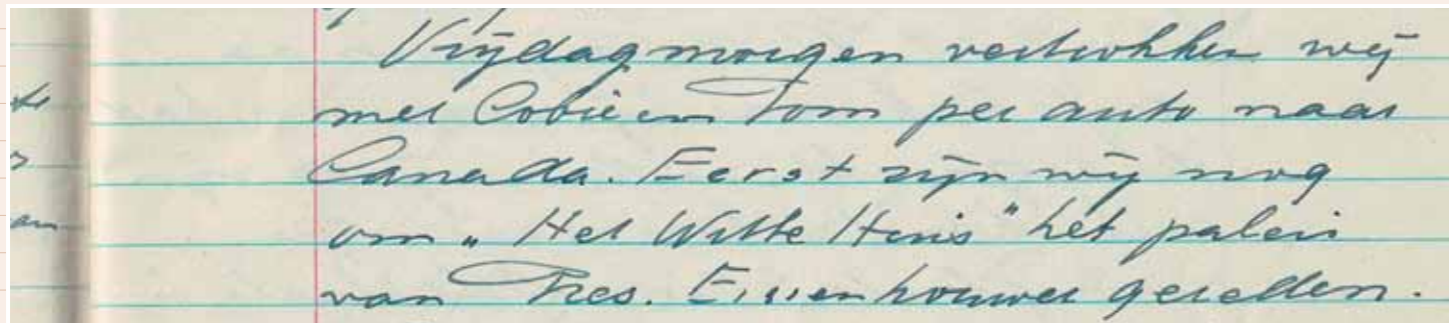 Vrijdagmorgen vertrokken wij
met Cobie en Tom per auto naar
Canada. Eerst zijn wij nog
om „Het Witte Huis" het paleis
van Pres. Eisenhouwer gereden.